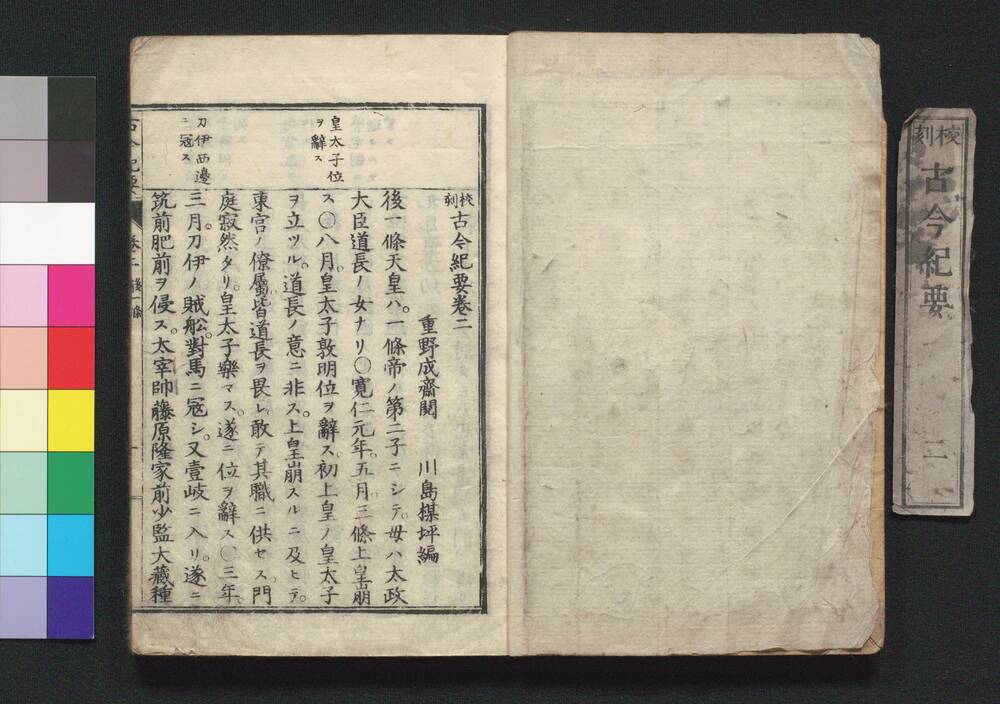 校刻 古今紀要 二
校刻古今紀要卷二
重野成齋閲 川島楳坪編
後一條天皇ハ。一條帝ノ第二子ニシテ。母ハ太政
大臣道長ノ女ナリ〇寛仁元年。五月三條上皇崩
ス〇八月。皇太子敦明位ヲ辭ス。初上皇ノ皇太子
ヲ立ツル。道長ノ意ニ非ス。上皇崩スルニ及ヒテ。
東宮ノ僚屬皆道長ヲ畏レ。敢テ其職ニ供セス。門
庭寂然タリ。皇太子樂マス。遂ニ位ヲ辭ス〇三年。
三月。刀伊ノ賊舩。對馬ニ冦シ。又壹岐ニ入リ。遂ニ
筑前肥前ヲ侵ス。太宰帥藤原隆家前少監大藏種
皇太子位
ヲ辭ス
刀伊西邊
ニ冦ス
古今紀要 卷二 後一條 一